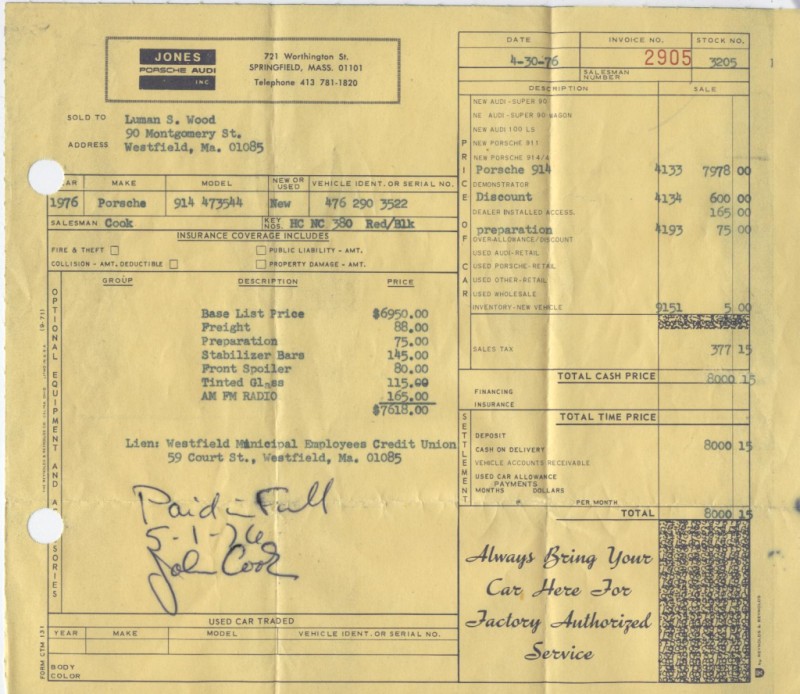 JONES
PORSCHE AUDI
INC
721 Worthington St.
SPRINGFIELD, MASS. 01101
Telephone 413 781-1820
DATE INVOICE NO. STOCK NO.
4-30-76 2905 3205
SALESMAN NUMBER
SOLD TO Luman S. Wood
90 Montgomery St.
ADDRESS Westfield, Ma. 01085
YEAR MAKE MODEL NEW OR USED VEHICLE IDENT. OR SERIAL NO.
1976 Porsche 914 473544 New 476 290 3522
SALESMAN Cook KEY NOS. HC NC 380 Red/Blk
INSURANCE COVERAGE INCLUDES
FIRE & THEFT PUBLIC LIABILITY - AMT.
COLLISION - AMT. DEDUCTIBLE PROPERTY DAMAGE - AMT.
GROUP DESCRIPTION PRICE
OPTIONAL EQUIPMENT AND
Base List Price $6950.00
Freight 88.00
Preparation 75.00
Stabilizer Bars 145.00
Front Spoiler 80.00
Tinted Glass 115.00
AM FM RADIO 165.00
$7618.00
Lien: Westfield Municipal Employees Credit Union
59 Court St., Westfield, Ma. 01085
Paid in Full
5-1-76
John Cook
USED CAR TRADED
YEAR MAKE MODEL VEHICLE IDENT. OR SERIAL NO.
BODY
COLOR
FORM CTM 131
DESCRIPTION SALE
PRICE OF CAR
NEW AUDI-SUPER 90
NE AUDI-SUPER 90 WAGON
NEW AUDI 100 LS
NEW PORSCHE 911
NEW PORSCHE 914/
Porsche 914 4133 7978 00
DEMONSTRATOR
Discount 4134 600 00
DEALER INSTALLED ACCESS. 165 00
preparation 4193 75 00
OVER-ALLOWANCE/DISCOUNT
USED AUDI-RETAIL
USED PORSCHE-RETAIL
USED OTHER-RETAIL
USED WHOLESALE
INVENTORY-NEW VEHICLE 9151 5 00
SALES TAX 377 15
TOTAL CASH PRICE 8000 15
FINANCING
INSURANCE
TOTAL TIME PRICE
SETTLEMENT
DEPOSIT
CASH ON DELIVERY 8000 15
VEHICLE ACCOUNTS RECEIVABLE
USED CAR ALLOWANCE
PAYMENTS
MONTHS DOLLARS
PER MONTH
TOTAL 8000 15
Always Bring Your
Car Here For
Factory Authorized
Service